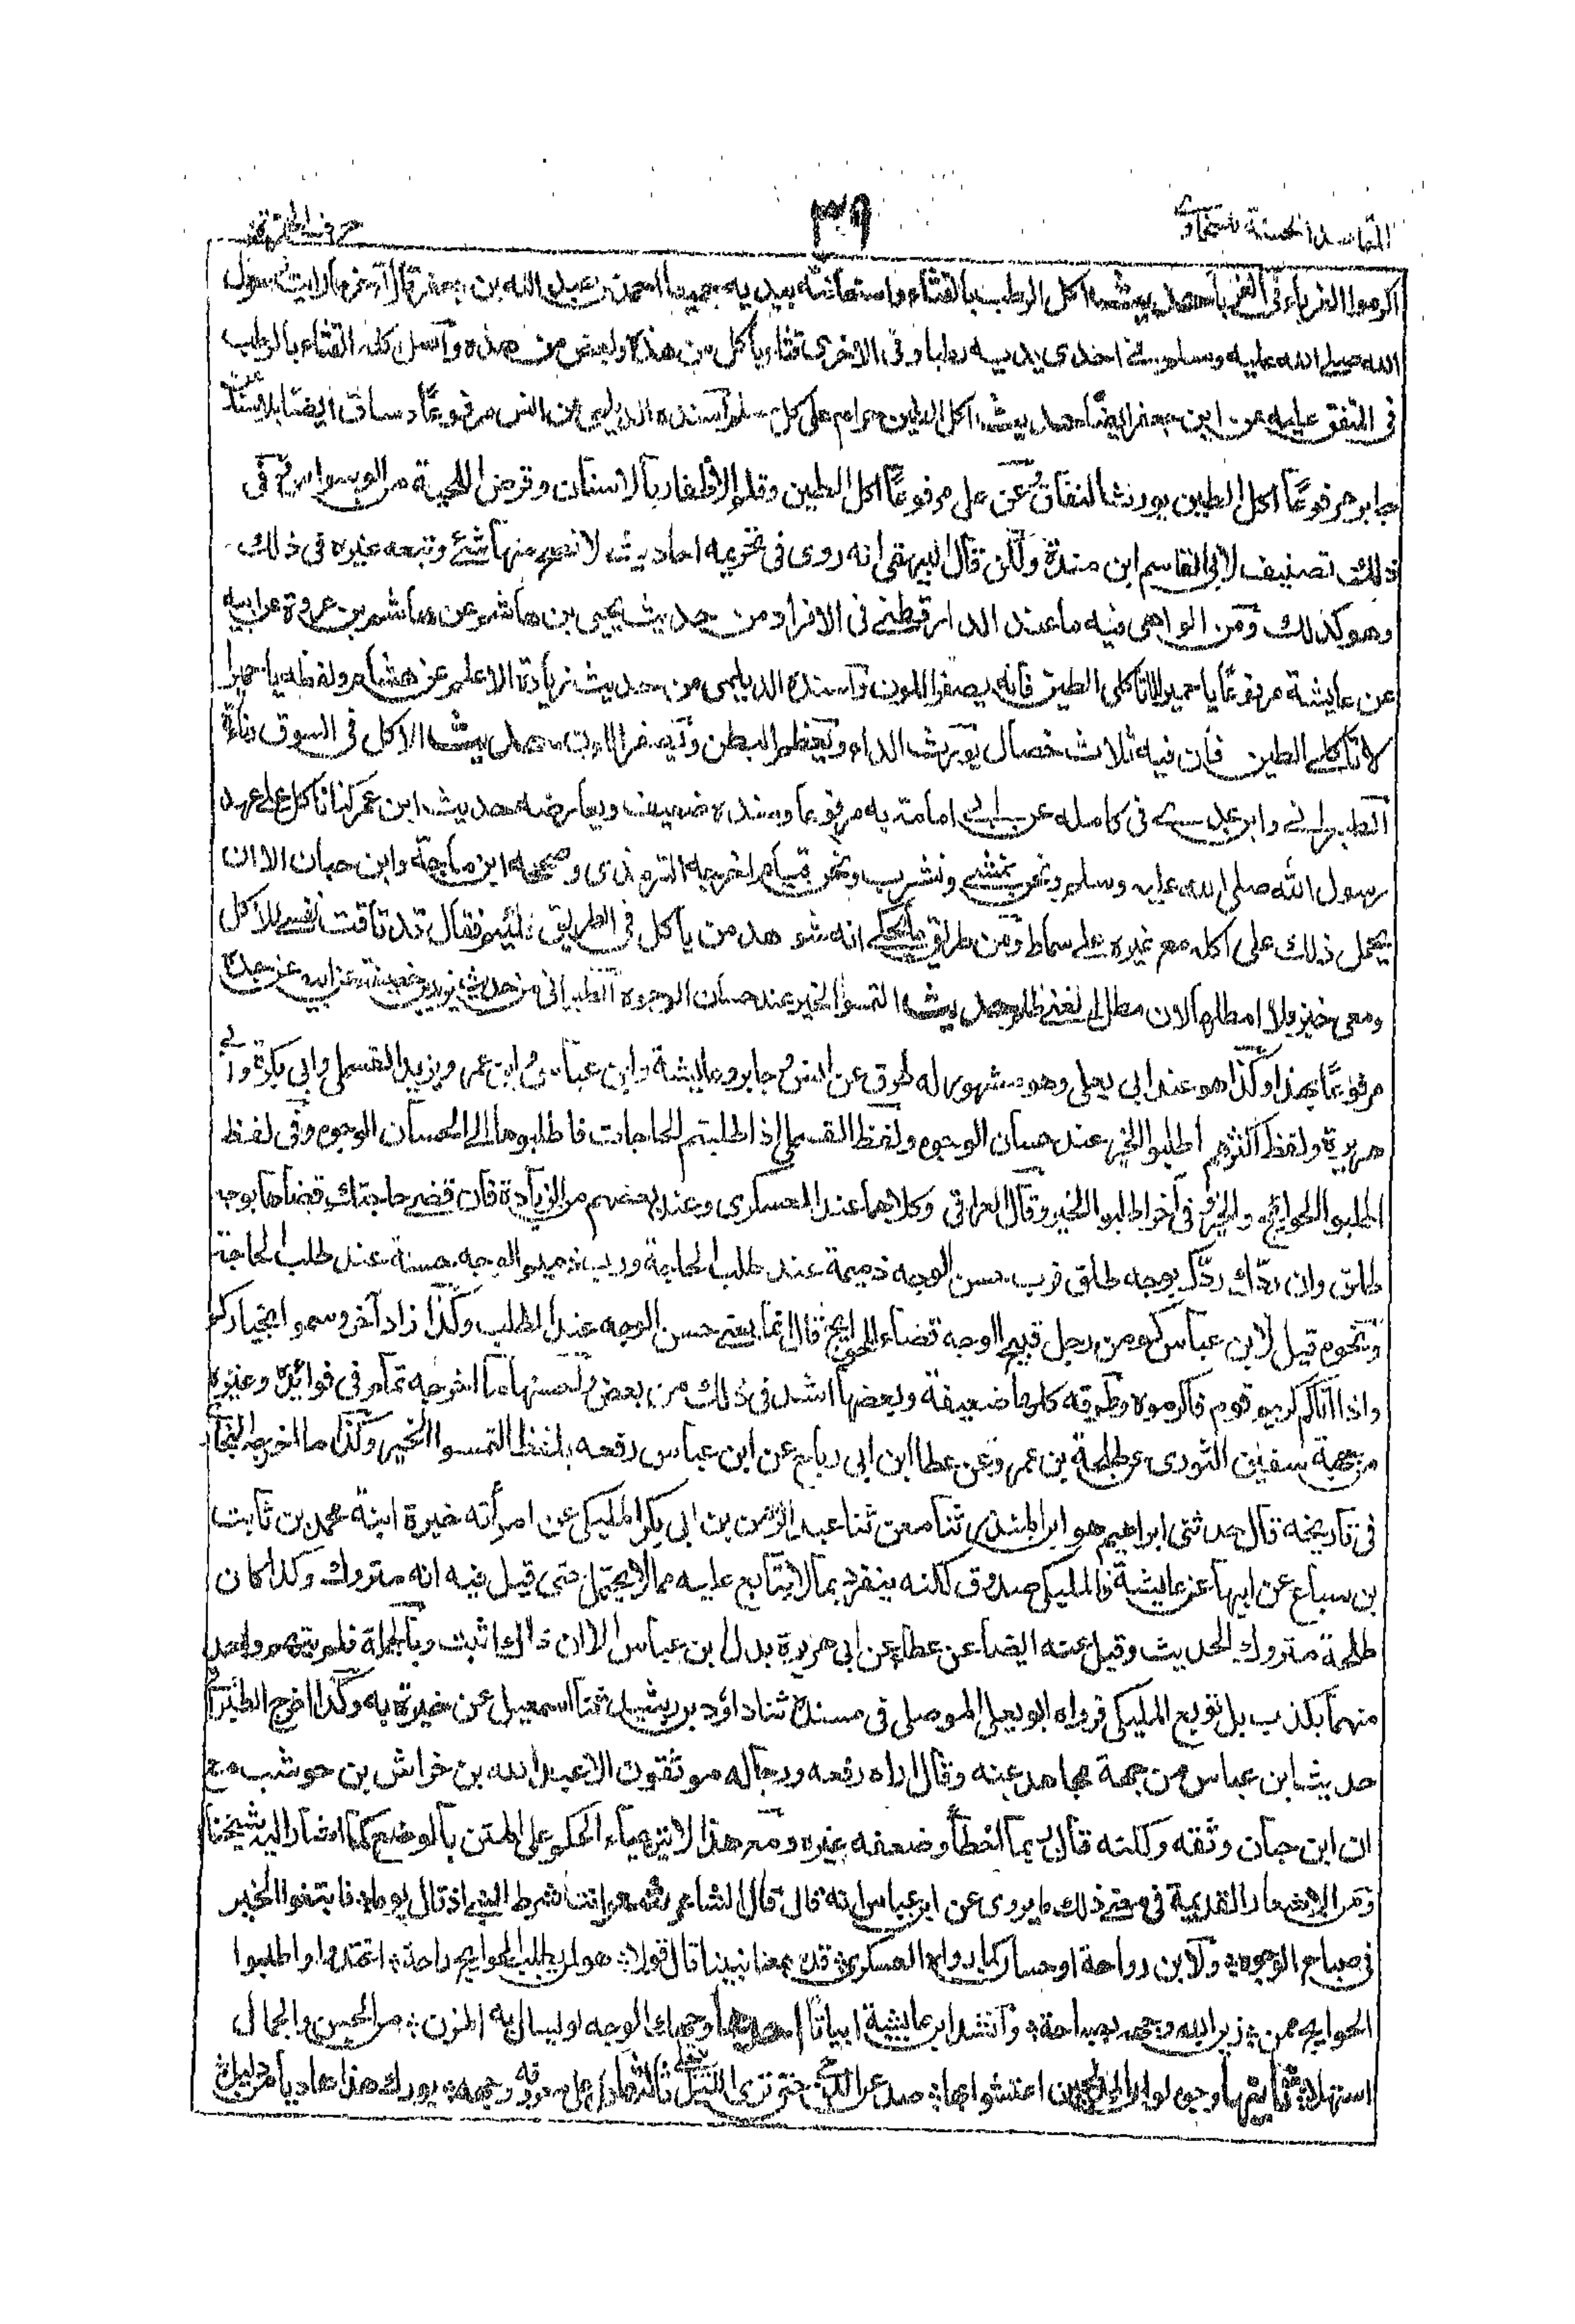 المقاصد الحسنة للسخاوي
٣٩
حرف الهمزة
اكرموا الغرباء فى الغربة حديث اكل الرطب بالقثاء واستعانته بيديه جميعا احمد عن عبد الله بن جعفر قال آخر ما رايت رسول
الله صلى الله عليه وسلم فى احدى يديه رطبا وفى الاخرى قثاء يأكل من هذه وبعض من هذه واصل اكله القثاء بالرطب
فى المتفق عليه عن ابن جعفر ايضا حديث اكل الطين حرام على كل مسلم اسنده الديلمى عن انس مرفوعا وساق ايضا بلا سند عن
جابر مرفوعا اكل الطين يورث النفاق وعن على مرفوعا اكل الطين وقلم الأظفار بالاسنان وقرض اللحية من الوسواس وفى
ذلك تصنيف لابى القاسم ابن مندة ولكن قال البيهقى انه روى فى تحريمه احاديث لا يصح منها شئ وتبعه غيره فى ذلك
وهو كذلك ومن الواهى فيه ما عند الدارقطنى فى الافراد من حديث يحيى بن هاشم عن هاشم بن عروة عن ابيه
عن عايشة مرفوعا يا حميرا لا تاكلى الطين فانه يصفر اللون واسنده الديلمى من حديث زيادة الاعلم عن هشام ولفظه يا حميرا
لا تاكلى الطين فان فيه ثلاث خصال يورث الداء ويعظم البطن ويصفر اللون حديث الاكل فى السوق دناءة
الطبرانى وابن عدى فى كامله عن ابى امامة به مرفوعا وسنده ضعيف ويعارضه حديث ابن عمر كنا ناكل على عهد
رسول الله صلى الله عليه وسلم ونحن نمشى ونشرب ونحن قيام اخرجه الترمذى وصححه ابن ماجة وابن حبان الا ان
يحمل ذلك على اكله مع غيره على سماط ومن طريق ما يحكى انه شوهد من يأكل فى الطريق فليم فقال قد تاقت نفسى للاكل
ومعى خبز ولا امطلها لان مطل الغنى ظلم حديث التمسوا الخير عند حسان الوجوه الطبرانى من حديث يزيد بن خصيفة عن ابيه عن جده
مرفوعا بهذا وكذا هو عند ابى يعلى وهو مشهور له طرق عن انس وجابر وعايشة وابن عباس وابن عمر ويزيد القسملى وابى بكرة وابى
هريرة ولفظ اكثرهم اطلبوا الخير عند حسان الوجوه ولفظ القسملى اذا طلبتم الحاجات فاطلبوها الى الحسان الوجوه وفى لفظ
اطلبوا الحوائج والخير فى آخر اطلبوا الخير وقال العراقى وكلاهما عند العسكرى وعند بعضهم من الزيادة فان قضى حاجتك قضاها بوجه
طلق وان ردك ردك بوجه طلق فرب حسن الوجه ذميمة عند طلب الحاجة ورب ذميم الوجه حسنة عند طلب الحاجة
ونحوه قيل لابن عباس كم من رجل قبيح الوجه قضاء للحوايج قال انما يعنى حسن الوجه عند الطلب وكذا زاد آخر وسموا بخياركم
واذا اتاكم كريم قوم فاكرموه وطرقه كلها ضعيفة وبعضها اشد فى ذلك من بعض واحسنها ما اخرجه تمام فى فوائده وغيره
من جهة سفين الثورى عن طلحة بن عمر وعن عطا ابن ابى رباح عن ابن عباس رفعه بلفظ التمسوا الخير وكذا ما اخرجه البخارى
فى تاريخه قال حدثنى ابراهيم هو ابن المنذر ثنا معن ثنا عبد الرحمن بن ابى بكر المليكى عن امرأته خيرة ابنة محمد بن ثابت
بن سباع عن ابيها عن عايشة فالمليكى صدوق لكنه ينفرد بما لا يتابع عليه مما لا يحتمل حتى قيل فيه انه متروك وكذا كان
طلحة متروك الحديث وقيل عنه ايضا عن عطاء عن ابى هريرة بدل ابن عباس الا ان ذاك اثبت وبالجملة فلم يتهم واحد
منهما بكذب بل توبع المليكى فرواه ابو يعلى الموصلى فى مسنده ثنا داود بن رشيد ثنا اسمعيل عن خيرة به وكذا اخرج الطبرانى
حديث ابن عباس من جهة مجاهد عنه وقال اراه رفعه ورجاله موثقون الا عبد الله بن خراش بن حوشب مع
ان ابن حبان وثقه ولكنه قال ربما اخطأ وضعفه غيره ومع هذا لا يتهيأ الحكم على المتن بالوضع كما اشار اليه شيخنا
ومن الاشعار القديمة فى معنى ذلك ما يروى عن ابن عباس انه قال قال الشاعر شعر انتنا شرط النبى اذ قال يوما؛ فابتغوا الخير
فى صباح الوجوه؛ ولابن رواحة او حسان كما رواه العسكرى؛ قد سمعنا نبينا قال قولا؛ هو لمن يطلب الحوايج راحة؛ اغتدوا واطلبوا
الحوايج ممن؛ زين الله وجهه بصباحة؛ وانشد ابن عايشة ابياتا احدها وجهك الوجه لو يسال به المزن؛ من الحسن والجمال
استهلا؛ ثانيها وجوه لو ان المدلجين اعتشوا بها؛ صدعن الدجى حتى ترى الليل ينجلى ثالثها دل على معروفه وجهه؛ بورك هذا هاديا من دليل؛